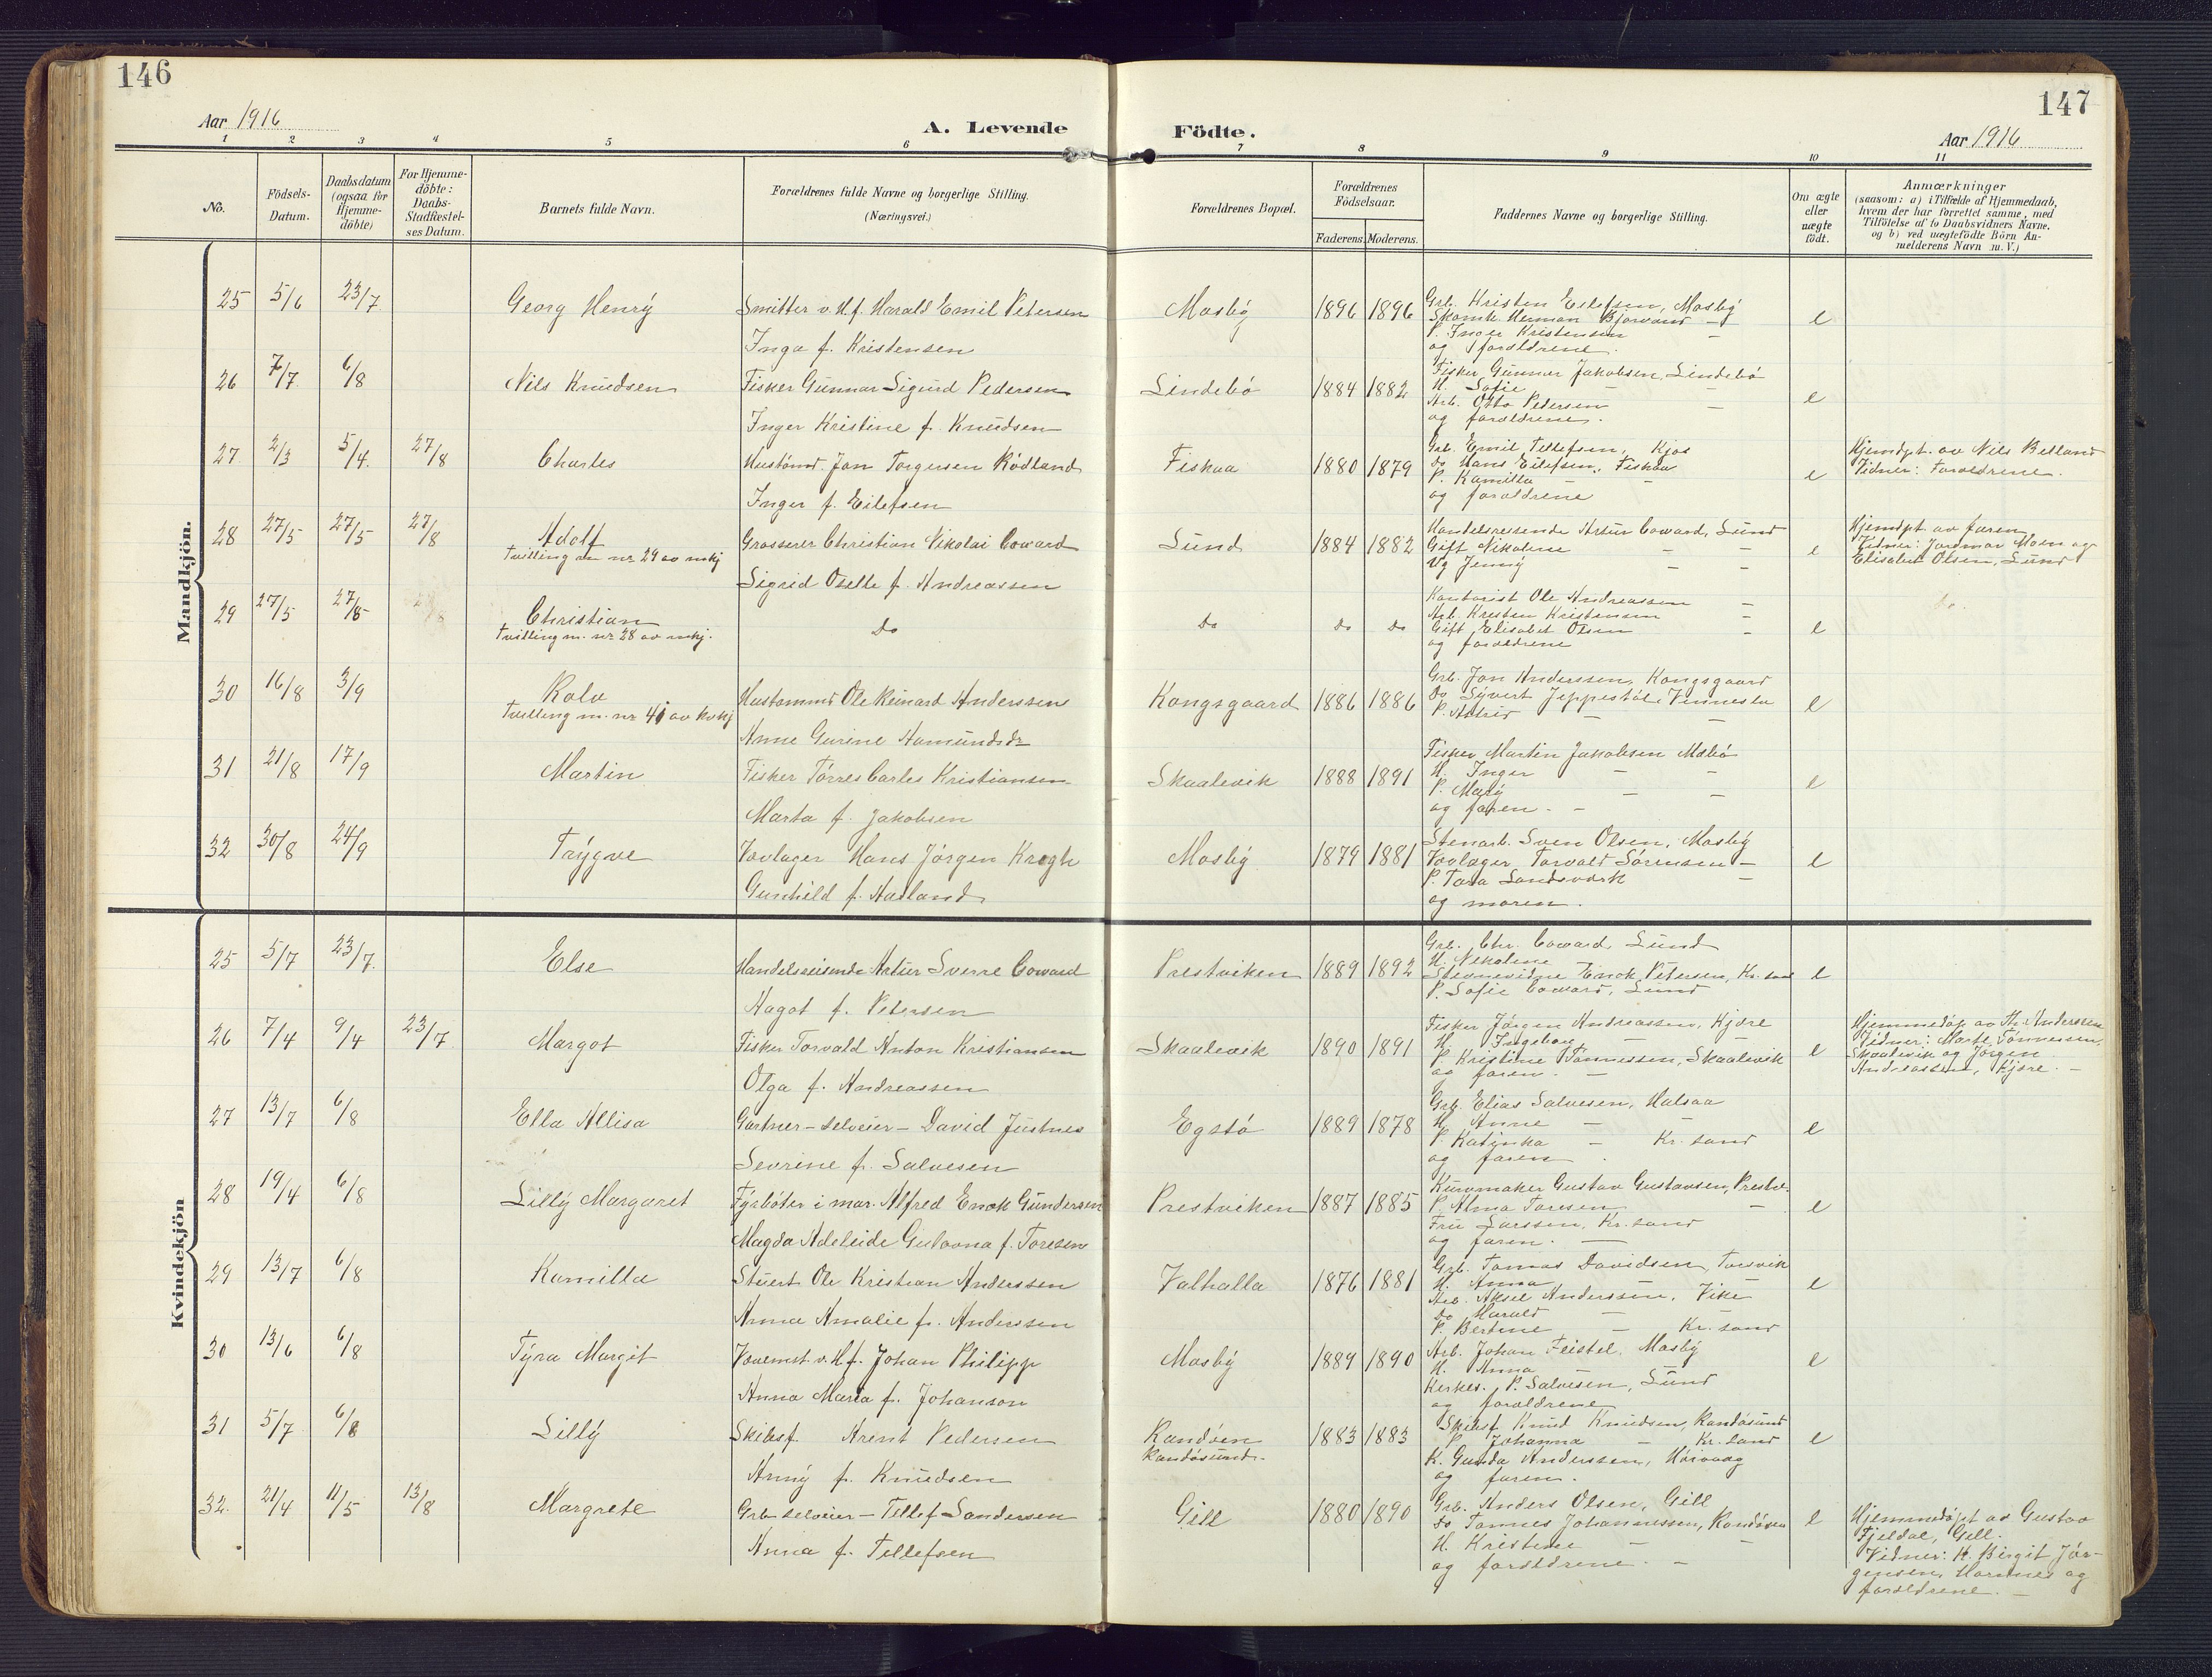 146
147
Aar 1916
A. Levende
Födte.
Aar 1916
1 2 3 4 5 6 7 8 9 10 11
No.
Födsels-
Datum.
Daabsdatum
(ogsaa for
Hjemme-
döbte)
For Hjemme-
döbte:
Daabs-
Stadfæstel-
ses Datum.
Barnets fulde Navn.
Forældrenes fulde Navne og borgerlige Stilling.
(Næringsvei.)
Forældrenes Bopæl.
Forældrenes
Födselsaar.
Faderens. Moderens.
Faddernes Navne og borgerlige Stilling.
Om ægte
eller
uægte
födt.
Anmærkninger
(saasom: a) i Tilfælde af Hjemmedaab,
hvem der har forrettet samme, med
Tilföielse af to Daabsvidners Navne,
og b) ved uægtefödte Börn An-
melderens Navn m. V.)
Mandkjön.
25 5/6 23/7 Georg Henrÿ
Smitter v. H.f. Harald Emil Petersen
Inga f. Kristensen
Mosbÿ 1896 1896
Grb. Kristen Eilefsen, Mosbÿ
Skomk. Herman Bjorvand -
P. Inger Kristensen -
og foreldrene.
e
26 7/7 6/8 Nils Knudsen
Fisker Gunnar Sigurd Pedersen
Inger Kristine f. Knudsen
Lindebö 1884 1882
Fisker Gunnar Jakobsen, Lindebö
H. Sofie - -
Arb. Otto Pedersen -
og foreldrene.
e
27 2/3 5/4 27/8 Charles
Hustomt. Jan Torgersen Rödland
Inger f. Eilefsen
Fiskaa 1880 1879
Grb. Emil Tellefsen, Kjos
do Hans Eilefsen, Fiskaa
P. Kamilla - -
og foreldrene
e
Hjemdpt. av Nils Belland
Vidner: Foreldrene.
28 27/5 27/5 27/8 Adolf
Tvilling m. nr 29 av mkj
Grosserer Christian Nikolai Coward
Sigrid Oselle f. Andreassen
Lund 1884 1882
Handelsreisende Artur Coward, Lund
Gift Nikoline - -
Ug Jenny - -
e
Hjemdpt. av faren
Vidner: Jordmor Moen og
Elisabet Olsen, Lund
29 27/5 27/5 Christian
Tvilling m. nr 28 av mkj.
Do
Do Do Do
Kontorist Ole Andreassen -
Arb. Kresten Kristensen -
Gift Elisabet Olsen -
og foreldrene
e
do.
30 16/8 3/9 Rolv
Tvilling m. nr 41 av kvkj
Hustommt Ole Reinard Anderssen
Anne Gurine Aamundsdr
Kongsgaard 1886 1886
Grb. Jon Anderssen, Kongsgaard
Do Syvert Jeppestöl, Vennesla
P. Astrid - -
e
31 21/8 17/9 Martin
Fisker Törres Carles Kristiansen
Marta f. Jakobsen
Skaalevik 1888 1891
Fisker Martin Jakobsen
H. Inger - -
P. Marÿ - -
og faren. -
e
32 30/8 24/9 Trÿgve
Vovlager Hans Jörgen Krogh
Gunhild f. Aasland
Mosbÿ 1879 1881
Stenarb. Sven Olsen, Mosbÿ
Vovlager Torvald Sörensen -
P. Tora Sandsvark -
og moren.
e
Kvindekjön
25 5/7 23/7 Else
Handelsreisende Artur Sverre Coward
Aagot f. Petersen
Prestviken 1889 1892
Grb. Chr. Coward, Lund
H. Nikoline
Stevnevidne Enok Petersen, Kr. sand
P. Sofie Coward, Lund
e
26 7/4 9/4 23/7 Margot
Fisker Torvald Anton Kristiansen
Olga f. Andreassen
Skaalevik 1890 1891
Fisker Jörgen Andreassen, Kjöre
H. Ingeborg -
P. Kristine Tönnessen, Skaalevik
og faren. -
e
Hjemmedöp. av Th. Anderssen
Vidner: Marte Tönnessen,
Skaalevik og Jörgen
Andreassen, Kjöre. -
27 13/7 6/8 Ella Allisa
Gartner - selveier - David Justnes
Sevrine f. Salvesen
Egstö 1889 1878
Grb. Elias Salvesen, Halsaa
H. Anne - -
P. Katinka - Kr. sand
og faren.
e
28 19/4 6/8 Lillÿ Margaret
Fÿrböter i mar. Alfred Enok Gundersen
Magda Adeleide Gulovna f. Toresen
Prestviken 1887 1885
Kurvmaker Gustav Gustavsen, Prestv.
P. Alma Toresen -
Fru Larssen, Kr. sand
og faren. -
e
29 13/7 6/8 Kamilla
Stuert Ole Kristian Anderssen
Anna Amalie f. Anderssen
Valhalla 1876 1881
Grb. Tomas Davidsen, Torsvik
H. Anna - -
Arb. Aksel Anderssen, Vike
Do Harald - -
P. Bertine - Kr. sand
e
30 13/6 6/8 Tÿra Margit
Vovemst. v. H.f. Johan Philipp
Anna Maria f. Johanson
Mosbÿ 1889 1890
Arb. Johan Feistel, Mosbÿ
H. Anna - -
Kirkes. P. Salvesen, Lund
og foreldrene
e
31 5/7 6/8 Lillÿ
Skibsf. Arent Pedersen
Annÿ f. Knudsen
Randöen
Randösund. 1883 1883
Skibsf. Knud Knudsen, Randösund
P. Johanna - Kr. sand
K. Gunda Anderssen, Höivaag
og faren.
e
32. 21/4 11/5 13/8 Margrete
Grb selveier - Tellef Sandersen
Anna f. Tellefsen
Gill 1880 1890
Grb. Anders Olsen, Gill
Do Tönnes Johannessen, Randöen
H. Kristine - -
og foreldrene. -
e
Hjemmedöpt av Gustav
Fjeldal, Gill.
Vidner: K. Birgit Jör-
gensen, Hamnes og
foreldrene. -